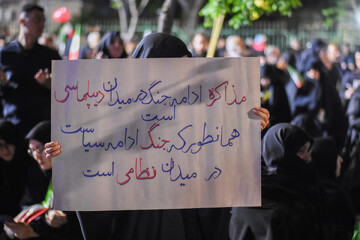 مذاکره ادامه جنگ در میدان دیپلماسی
است
همانطور که جنگ ادامه سیاست
در میدان نظامی است